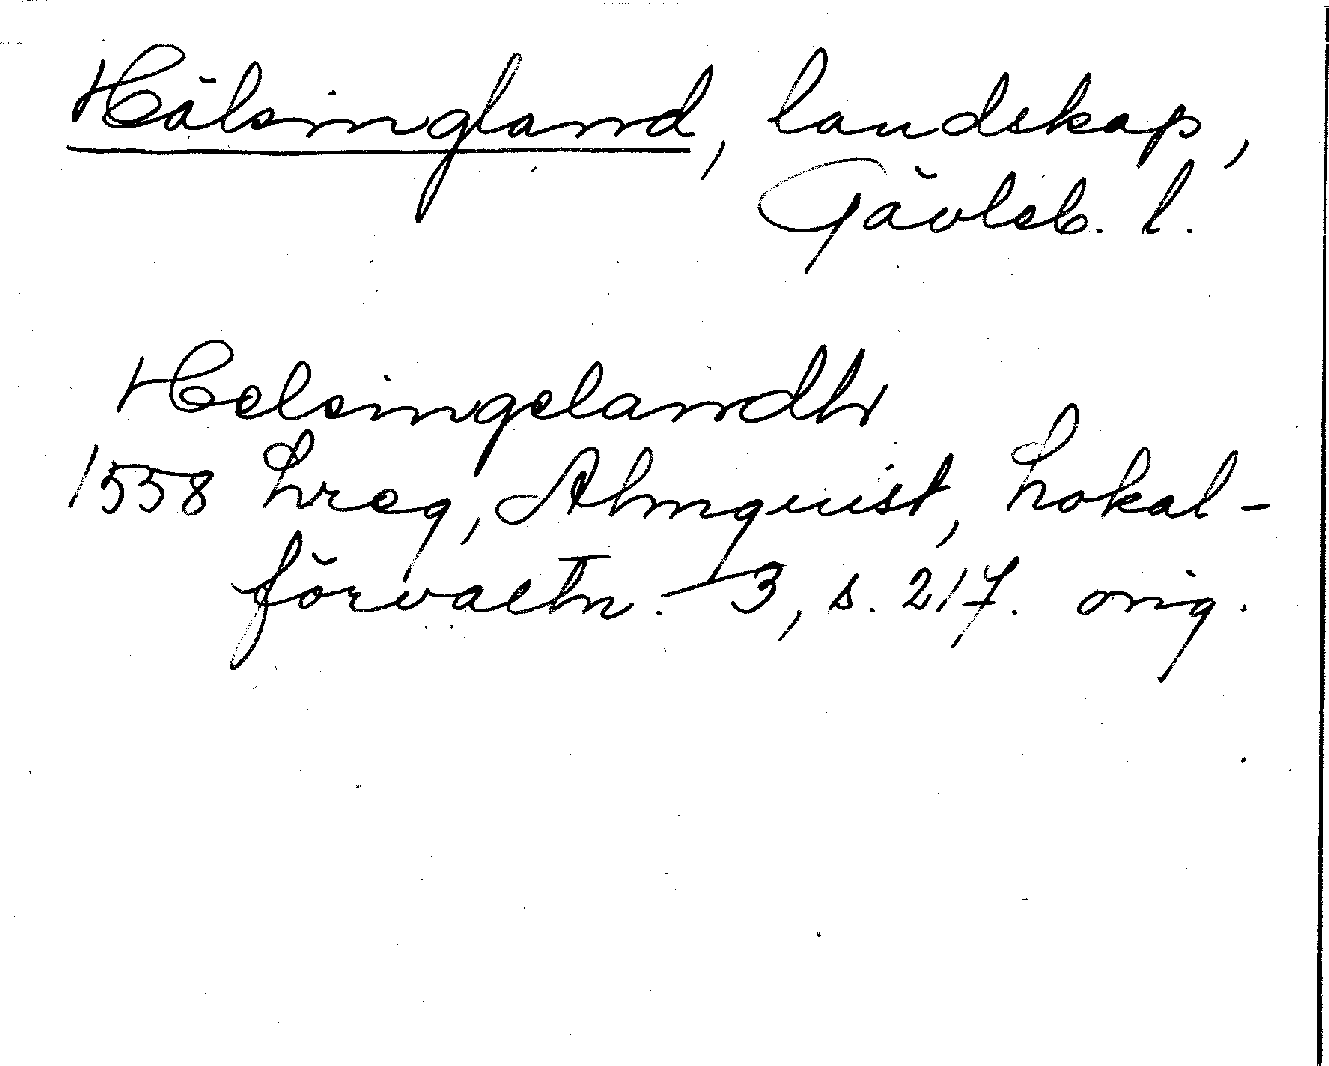 Hälsingland, landskap,
Gävleb. l.
Helsingelandh
1558 Lreg, Almquist, Lokal-
förvaltn. 3, s. 217. orig.